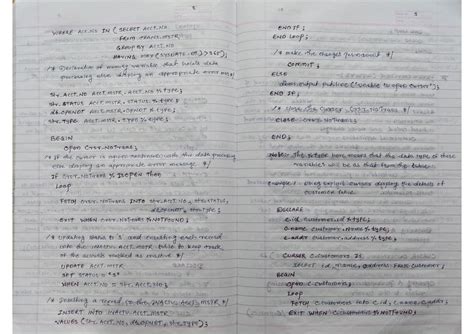 2
WHERE ACCT.NO IN ( SELECT ACCT.NO
FROM TRANS.MSTR
GROUP BY ACCT.NO
HAVING MAX (SYSDATE - DT) > 365 ) ;
/* Declaration of memory variable that holds data
processing else display an appropriate error msg */
str.ACCT.NO ACCT.MSTR.ACCT.NO % type ;
str.STATUS ACCT.MSTR.STATUS % type ;
ACCT.MSTR.OPNDT % type ;
str.TYPE ACCT.MSTR.TYPE % type ;
BEGIN
Open Crsr.NoTrans ;
/* If the cursor is open continue with the data processing
else display an appropriate error message */
If Crsr.NoTrans % isopen then
Loop
FETCH Crsr.NoTrans INTO str.ACCT.NO, str.STATUS,
str.TYPE ;
EXIT WHEN Crsr.NoTrans % NOTFOUND ;
/* Updating status to 'S' and inserting each record
into the INACTV_ACCT_MSTR table to keep track
of the accounts marked as inactive */
UPDATE ACCT.MSTR
SET STATUS = 'S'
WHEN ACCT.NO = str.ACCT.NO ;
/* Inserting a record in the INACTV_ACCT_MSTR */
INSERT INTO INACTV_ACCT_MSTR
VALUES (str.ACCT.NO, str.TYPE) ;
3
END IF ;
END LOOP ;
/* make the changes permanent */
COMMIT ;
ELSE
dbms.output.putline ("unable to open cursor") ;
END IF ;
CLOSE Crsr.NoTrans ;
END ;
Note : The % type here means that the data type of these
variables will be as that from the table
Example : Using explicit cursors display the details of
customer table
DECLARE
c.id customer.id % type ;
c.name customer.name % type ;
c.addr customer.address % type ;
CURSOR C.CUSTOMERS IS
SELECT id, name, address FROM customer ;
BEGIN
Open C.customers ;
Loop
FETCH C.customers into c.id, c.name, c.addr ;
EXIT WHEN C.customers % NOTFOUND ;